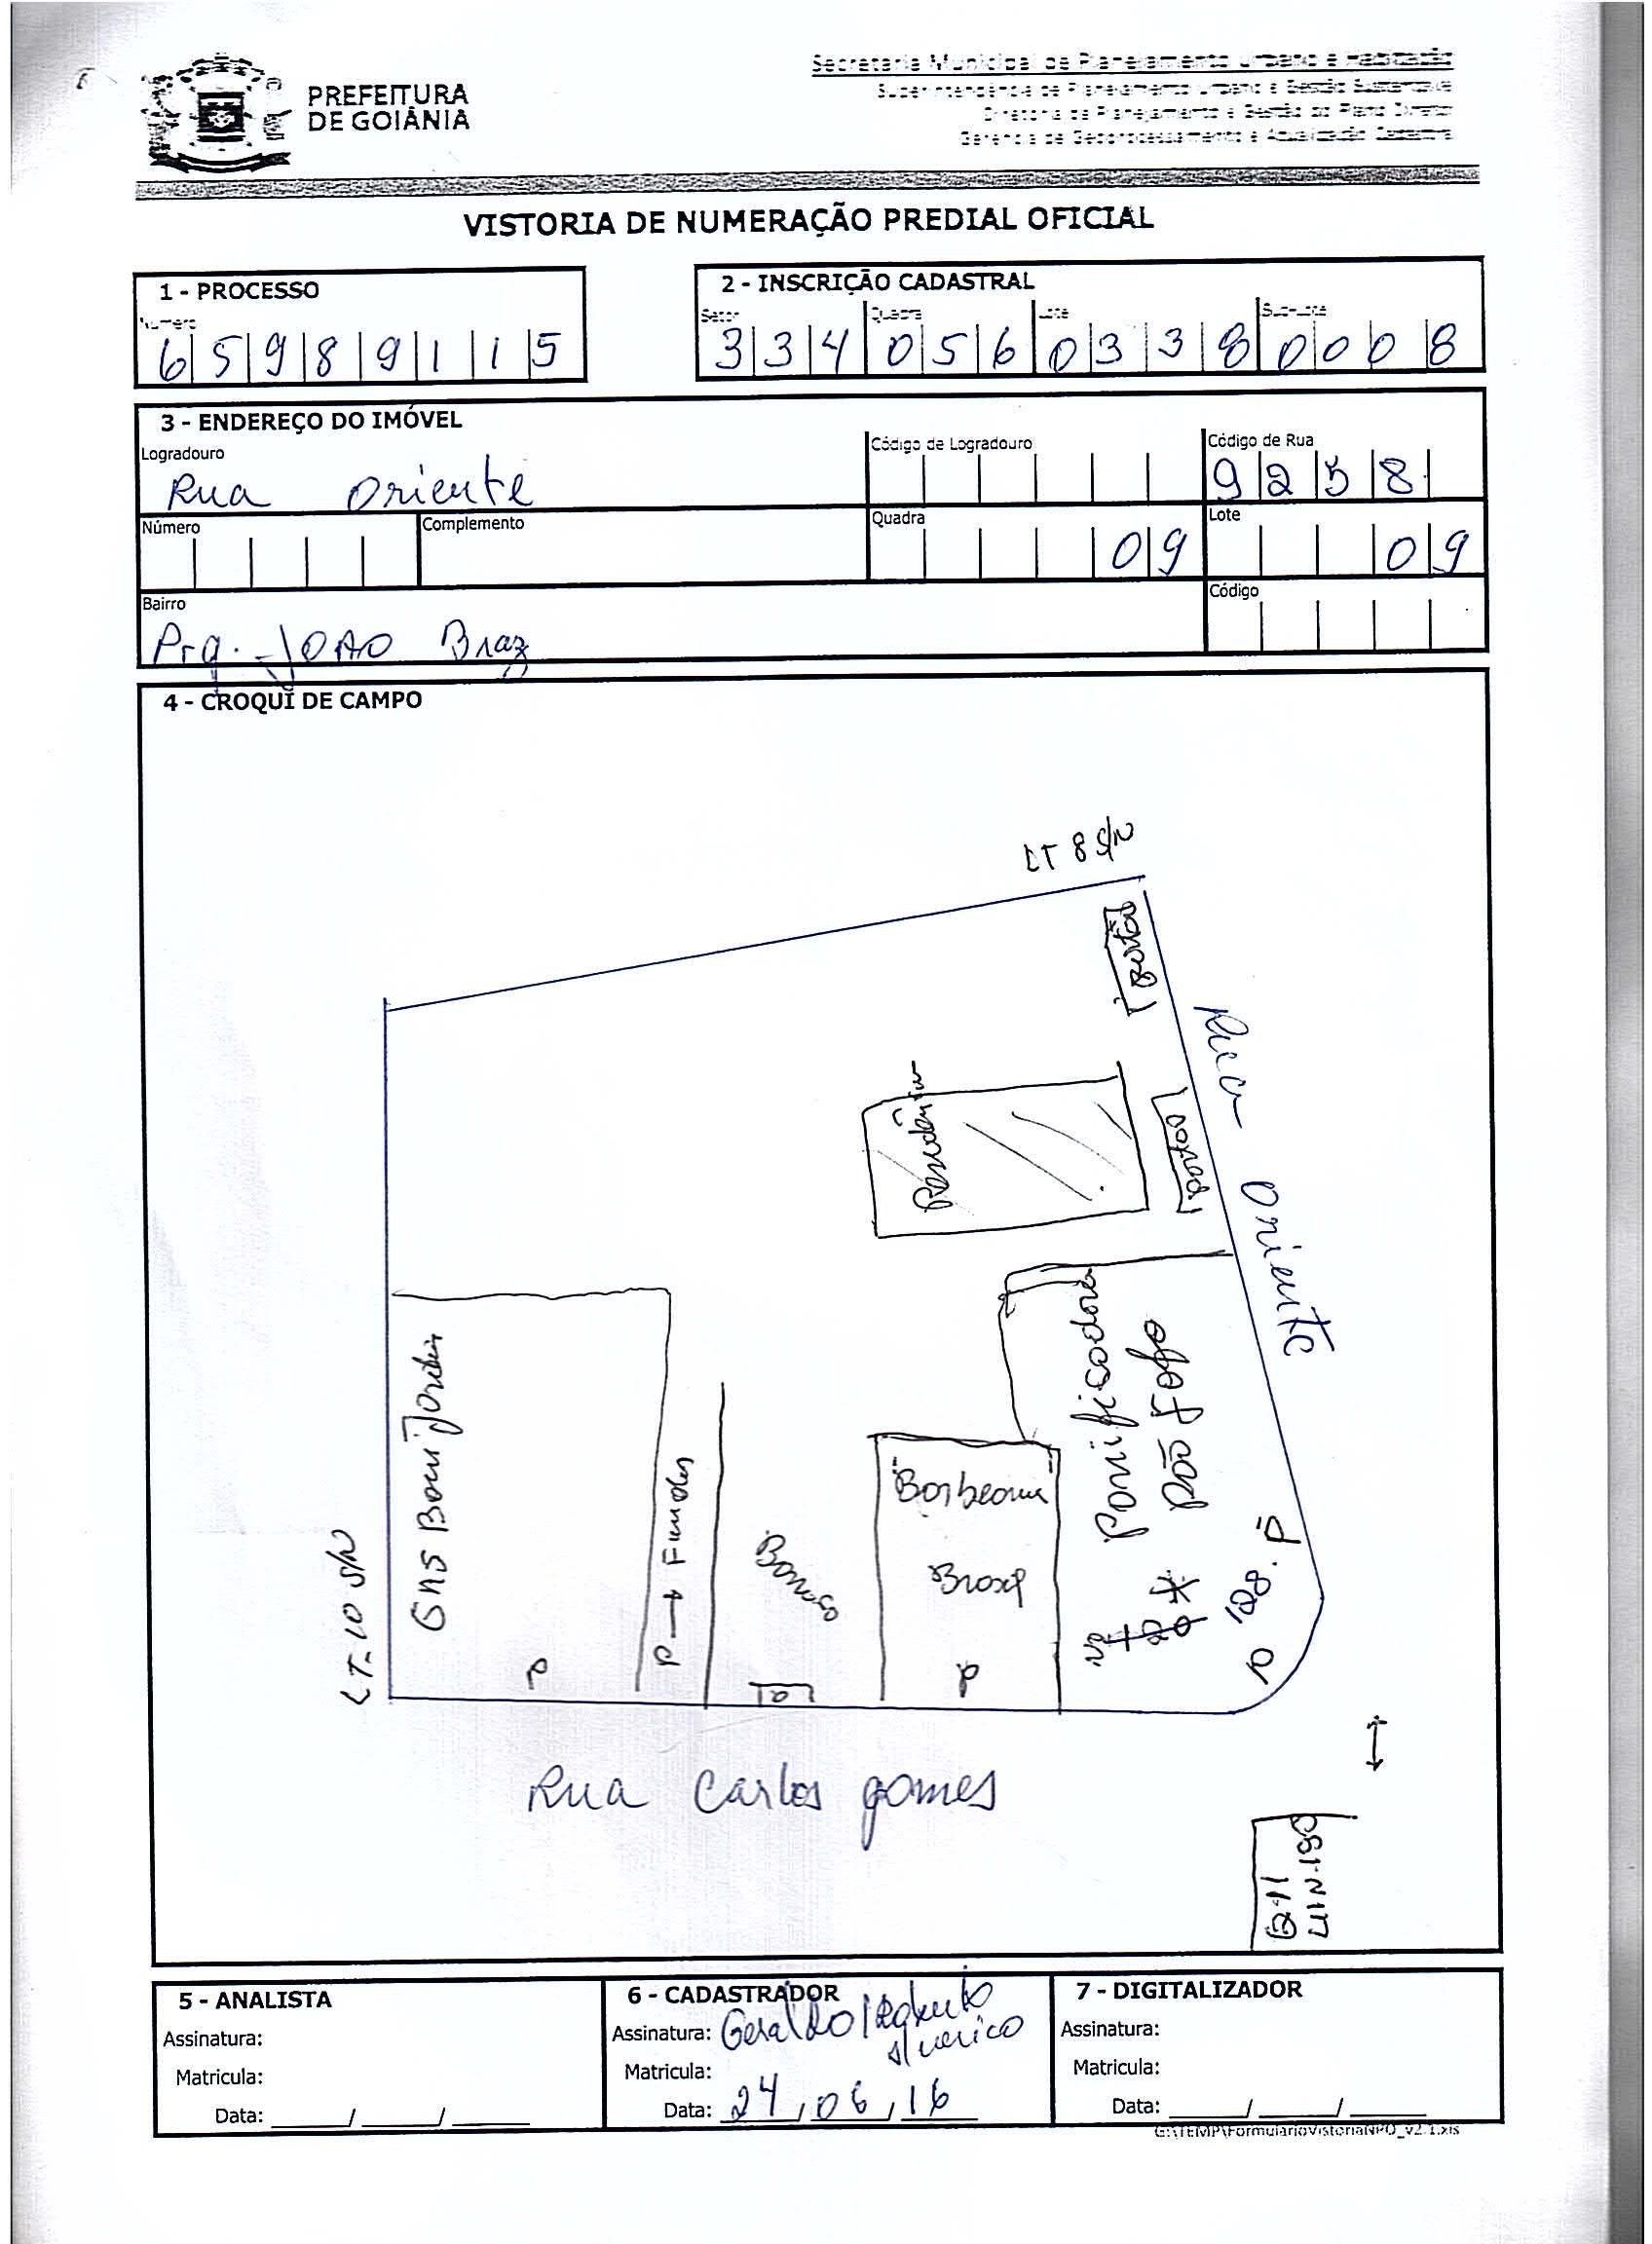 PREFEITURA
DE GOIÂNIA
Secretaria Municipal de Planejamento Urbano e Habitação
Superintendência de Planejamento Urbano e Gestão Sustentável
Diretoria de Planejamento e Gestão do Plano Diretor
Gerência de Geoprocessamento e Atualização Cadastral
VISTORIA DE NUMERAÇÃO PREDIAL OFICIAL
1 - PROCESSO
Número
65989115
2 - INSCRIÇÃO CADASTRAL
Setor Quadra Lote Sub-Lote
334 056 0338 0008
3 - ENDEREÇO DO IMÓVEL
Logradouro
Rua Oriente
Código de Logradouro
Código de Rua
9258
Número
Complemento
Quadra
09
Lote
09
Bairro
Prq. JOAO Braz
Código
4 - CROQUI DE CAMPO
LT 8 S/N
Portão
Rua Oriente
Portão
Panificadora
Pão Fofo
GNS
P → Fundos
LT-10 S/N
P
P
128. P
Rua Carlos gomes
Q-11
5 - ANALISTA
Assinatura:
Matricula:
Data: ____/____/____
6 - CADASTRADOR
Assinatura: Geraldo / Roberto
Americo
Matricula:
Data: 24/06/16
7 - DIGITALIZADOR
Assinatura:
Matricula:
Data: ____/____/____
G:\TEMP\FormularioVistoriaNPO_v2.1.xls